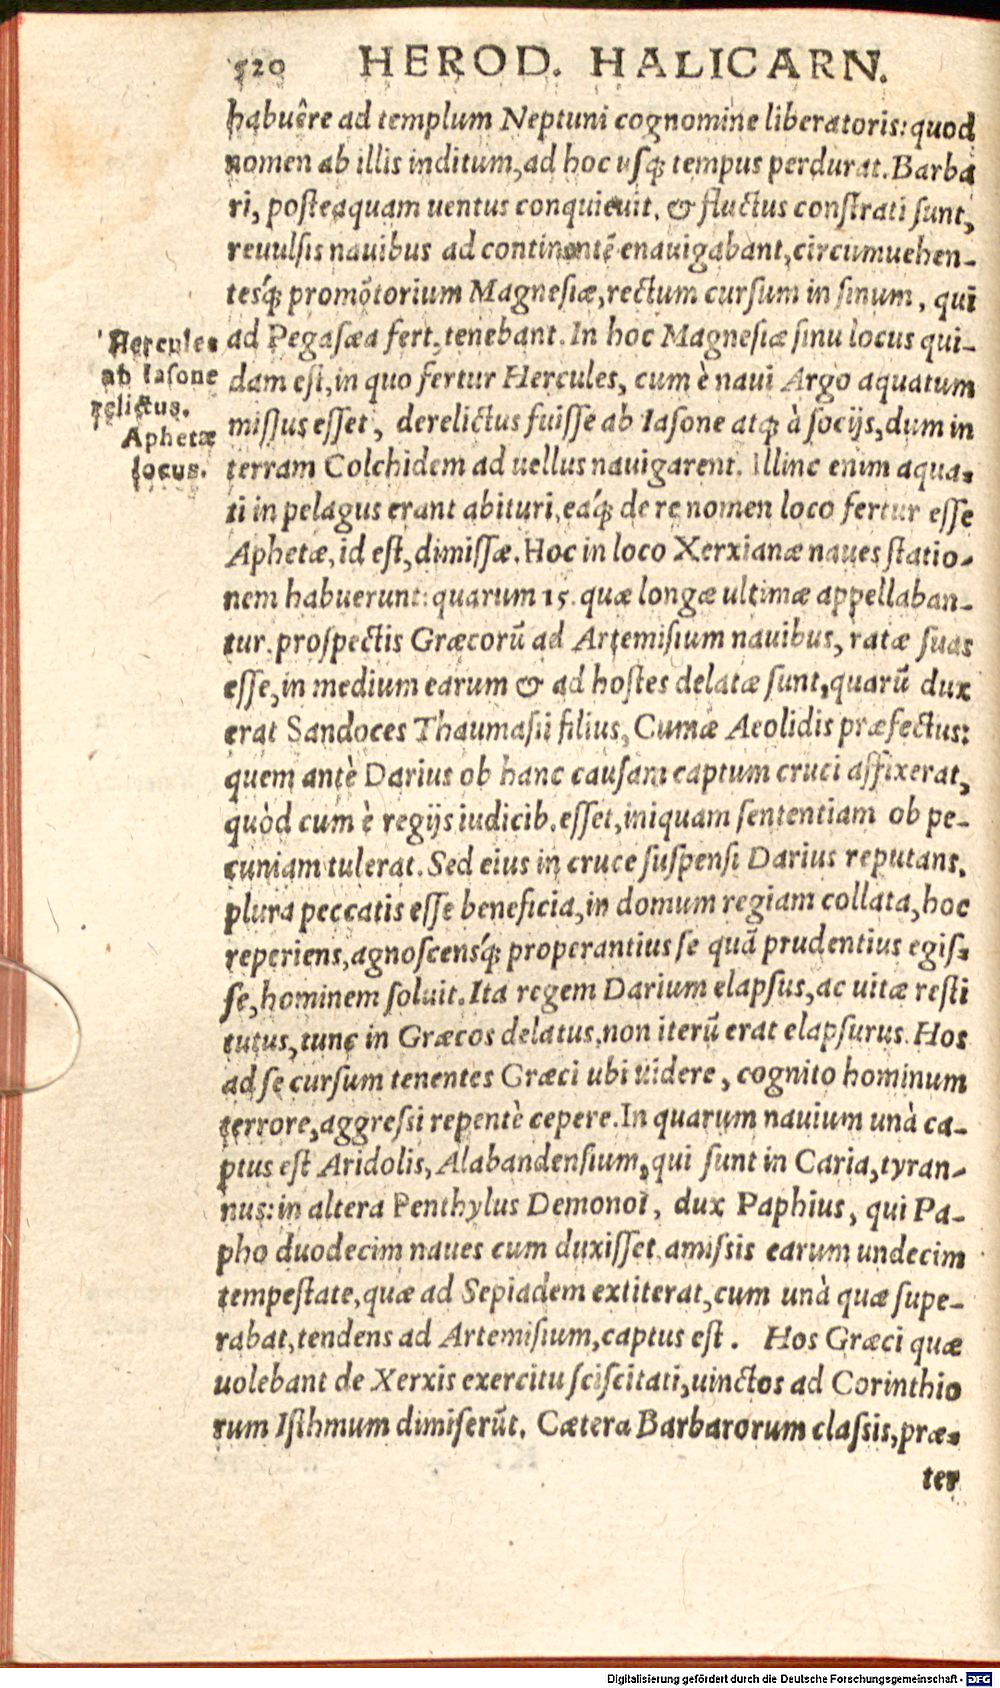 520 HEROD. HALICARN.
habuêre ad templum Neptuni cognomine liberatoris: quod
nomen ab illis inditum, ad hoc usq; tempus perdurat. Barba
ri, posteaquam uentus conquieuit, & fluctus constrati sunt,
reuulsis nauibus ad continentē enauigabant, circumuehen-
tesq́; promōtorium Magnesiæ, rectum cursum in sinum, qui
ad Pegasæa fert, tenebant. In hoc Magnesiæ sinu locus qui-
dam est, in quo fertur Hercules, cum è naui Argo aquatum
missus esset, derelictus fuisse ab Iasone atq; à socijs, dum in
terram Colchidem ad uellus nauigarent. Illinc enim aqua-
ti in pelagus erant abituri, eaq́; de re nomen loco fertur esse
Aphetæ, id est, dimissæ. Hoc in loco Xerxianæ naues statio-
nem habuerunt: quarum 15. quæ longæ ultimæ appellaban-
tur, prospectis Græcorū ad Artemisium nauibus, ratæ suas
esse, in medium earum & ad hostes delatæ sunt, quarū dux
erat Sandoces Thaumasii filius, Cumæ Aeolidis præfectus:
quem antè Darius ob hanc causam captum cruci affixerat,
quòd cum è regijs iudicib. esset, iniquam sententiam ob pe-
cuniam tulerat. Sed eius in cruce suspensi Darius reputans,
plura peccatis esse beneficia, in domum regiam collata, hoc
reperiens, agnoscensq́; properantius se quā prudentius egis-
se, hominem soluit. Ita regem Darium elapsus, ac uitæ resti
tutus, tunc in Græcos delatus, non iterū erat elapsurus. Hos
ad se cursum tenentes Græci ubi uidere, cognito hominum
terrore, aggressi repentè cepere. In quarum nauium unà ca-
ptus est Aridolis, Alabandensium, qui sunt in Caria, tyran-
nus: in altera Penthylus Demonoi, dux Paphius, qui Pa-
pho duodecim naues cum duxisset, amissis earum undecim
tempestate, quæ ad Sepiadem extiterat, cum unà quæ supe-
rabat, tendens ad Artemisium, captus est. Hos Græci quæ
uolebant de Xerxis exercitu sciscitati, uinctos ad Corinthio
rum Isthmum dimiserūt. Cætera Barbarorum classis, præ-
ter
Hercules
ab Iasone
relictus.
Aphetæ
locus.
Digitalisierung gefördert durch die Deutsche Forschungsgemeinschaft - DFG